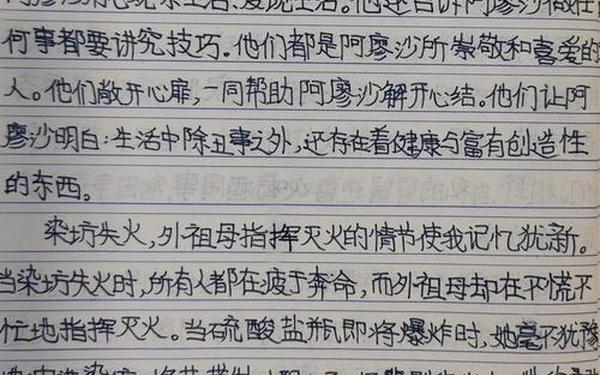 阿廖沙用心观察生活、发现生活。他还告诉阿廖沙做任
何事都要讲究技巧.他们都是阿廖沙所崇敬和喜爱的
人。他们敞开心扉,一同帮助阿廖沙解开心结。他们让阿
廖沙明白:生活中除丑事之外,还存在着健康与富有创造性
的东西。
染坊失火,外祖母指挥灭火的情节使我记忆犹新。
当染坊失火时,所有人都在疲于奔命,而外祖母却在不慌不
忙地指挥灭火。当硫酸盐瓶即将爆炸时,她毫不犹豫